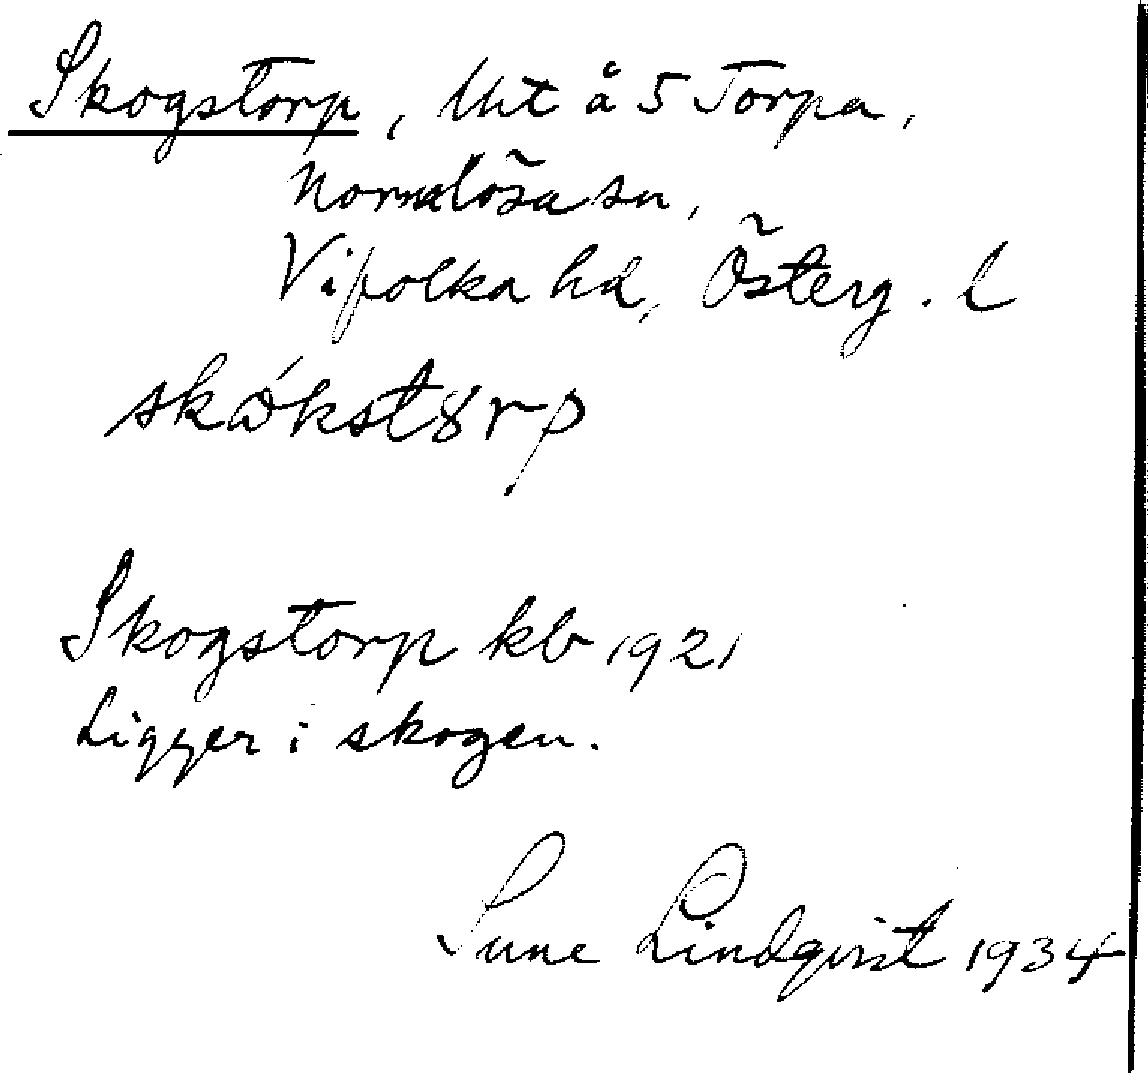 Skogstorp, Uht å 5 Torpa,
Normlösa sn,
Vifolka hd, Österg. l
skókst8rp
Skogstorp kb 1921
Ligger i skogen.
Sune Lindqvist 1934